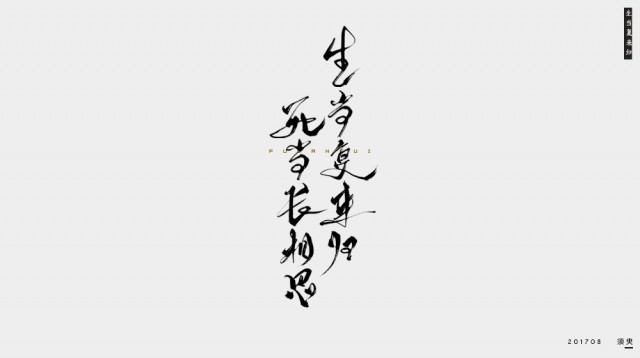 生当复来归
死当长相思
生当复来归
201708